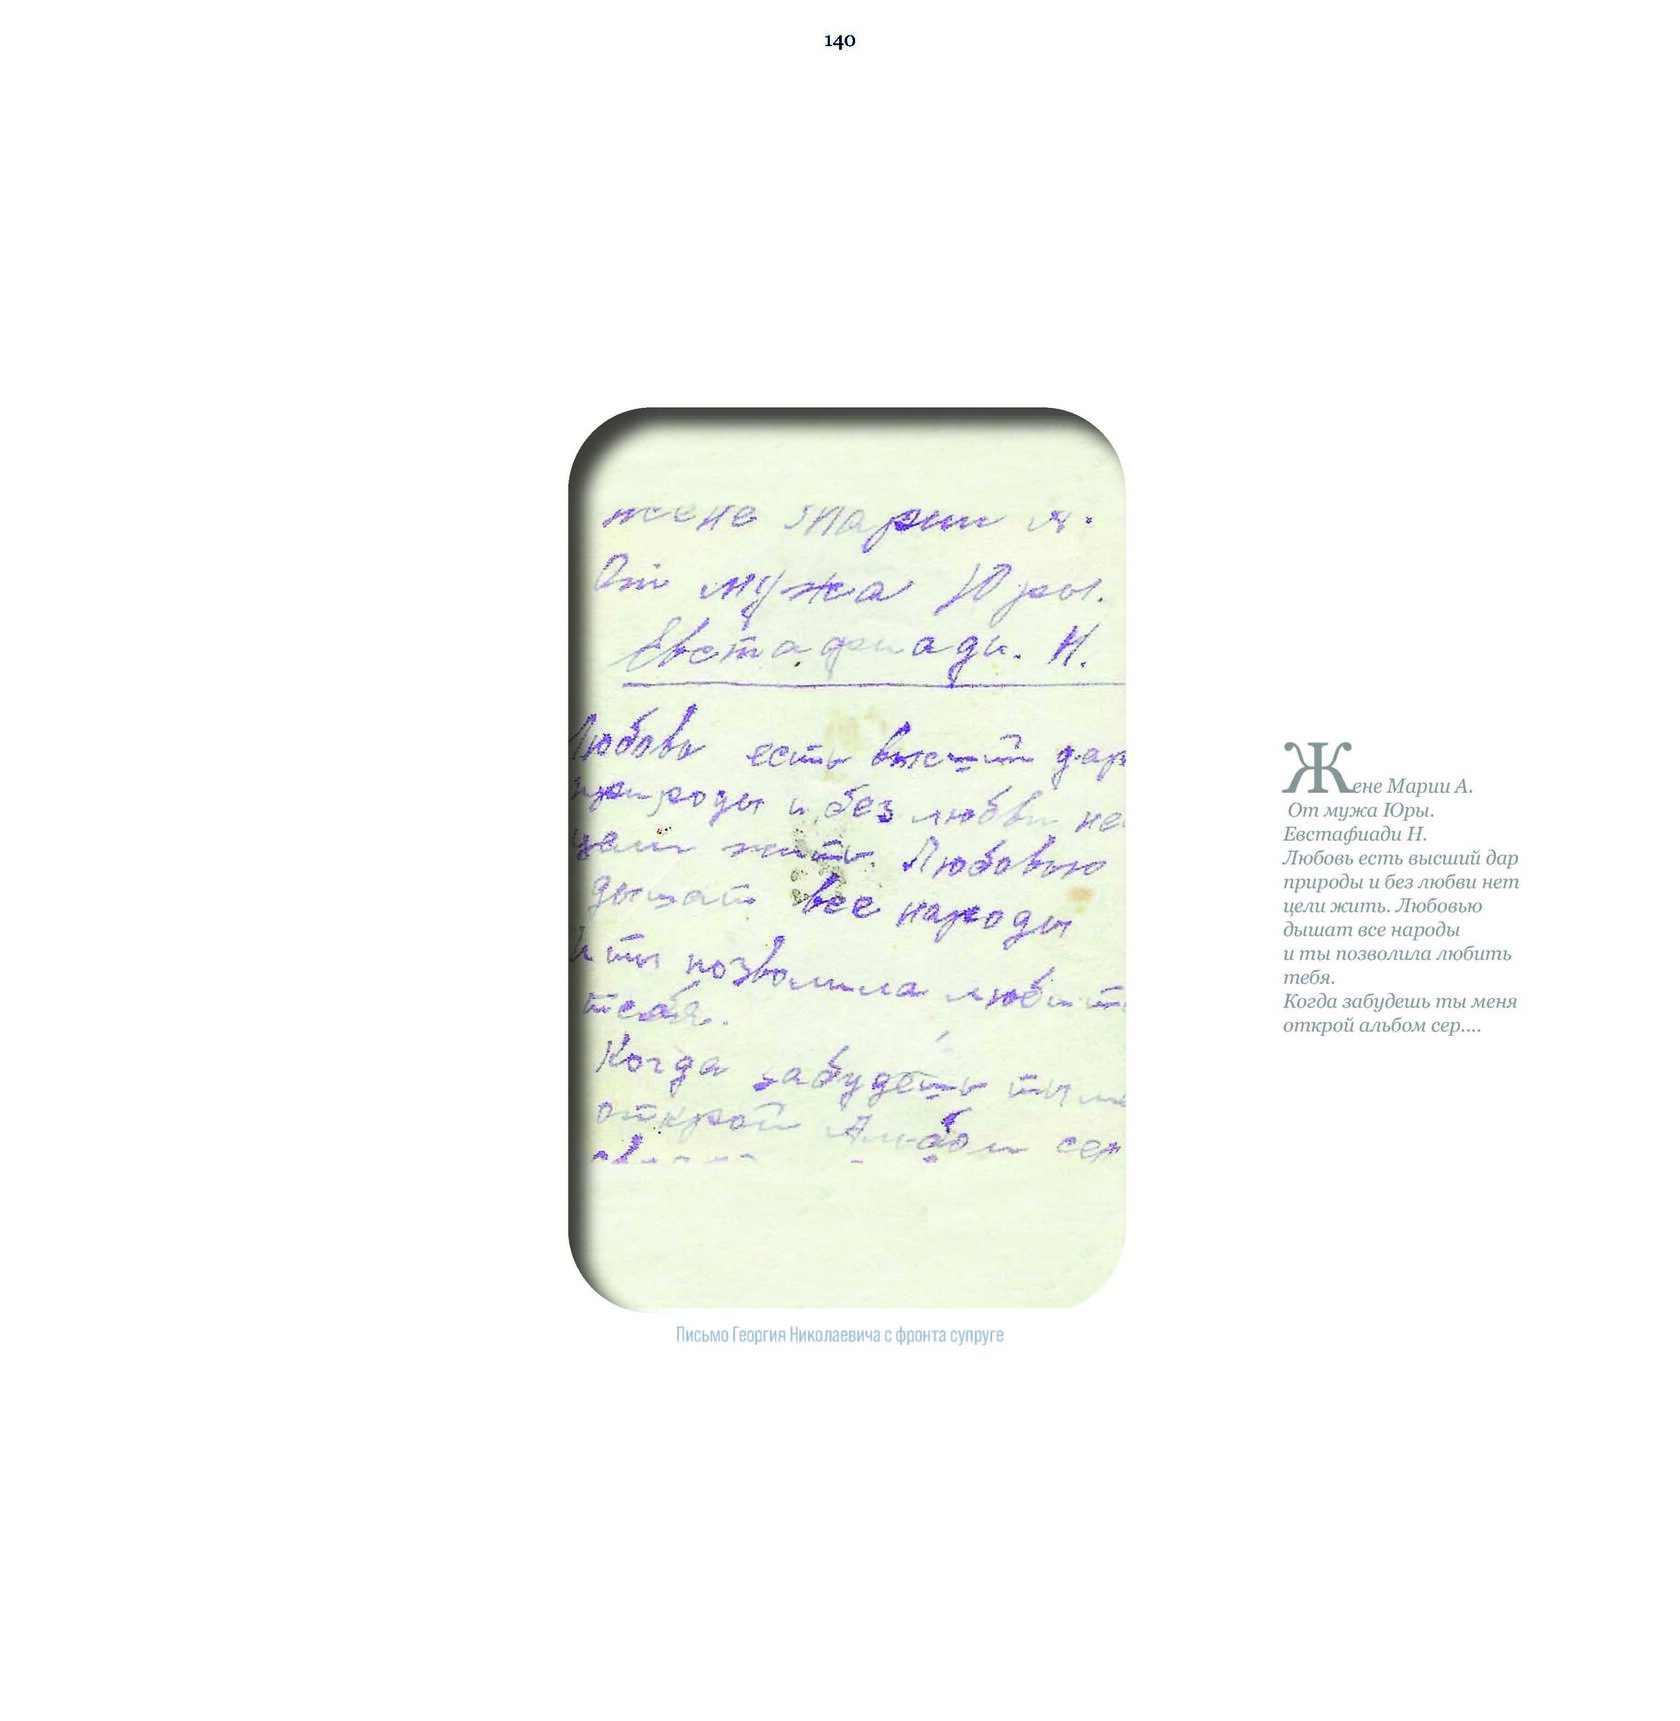 140
жене Марии А.
От мужа Юры.
Евстафиади. Н.
Любовь есть высший дар
природы и без любви не
цели жить. Любовью
дышат все народы
И ты позволила любит
тебя.
Когда забудешь ты ме
открой Альбом сер
Письмо Георгия Николаевича с фронта супруге
Жене Марии А.
От мужа Юры.
Евстафиади Н.
Любовь есть высший дар
природы и без любви нет
цели жить. Любовью
дышат все народы
и ты позволила любить
тебя.
Когда забудешь ты меня
открой альбом сер....